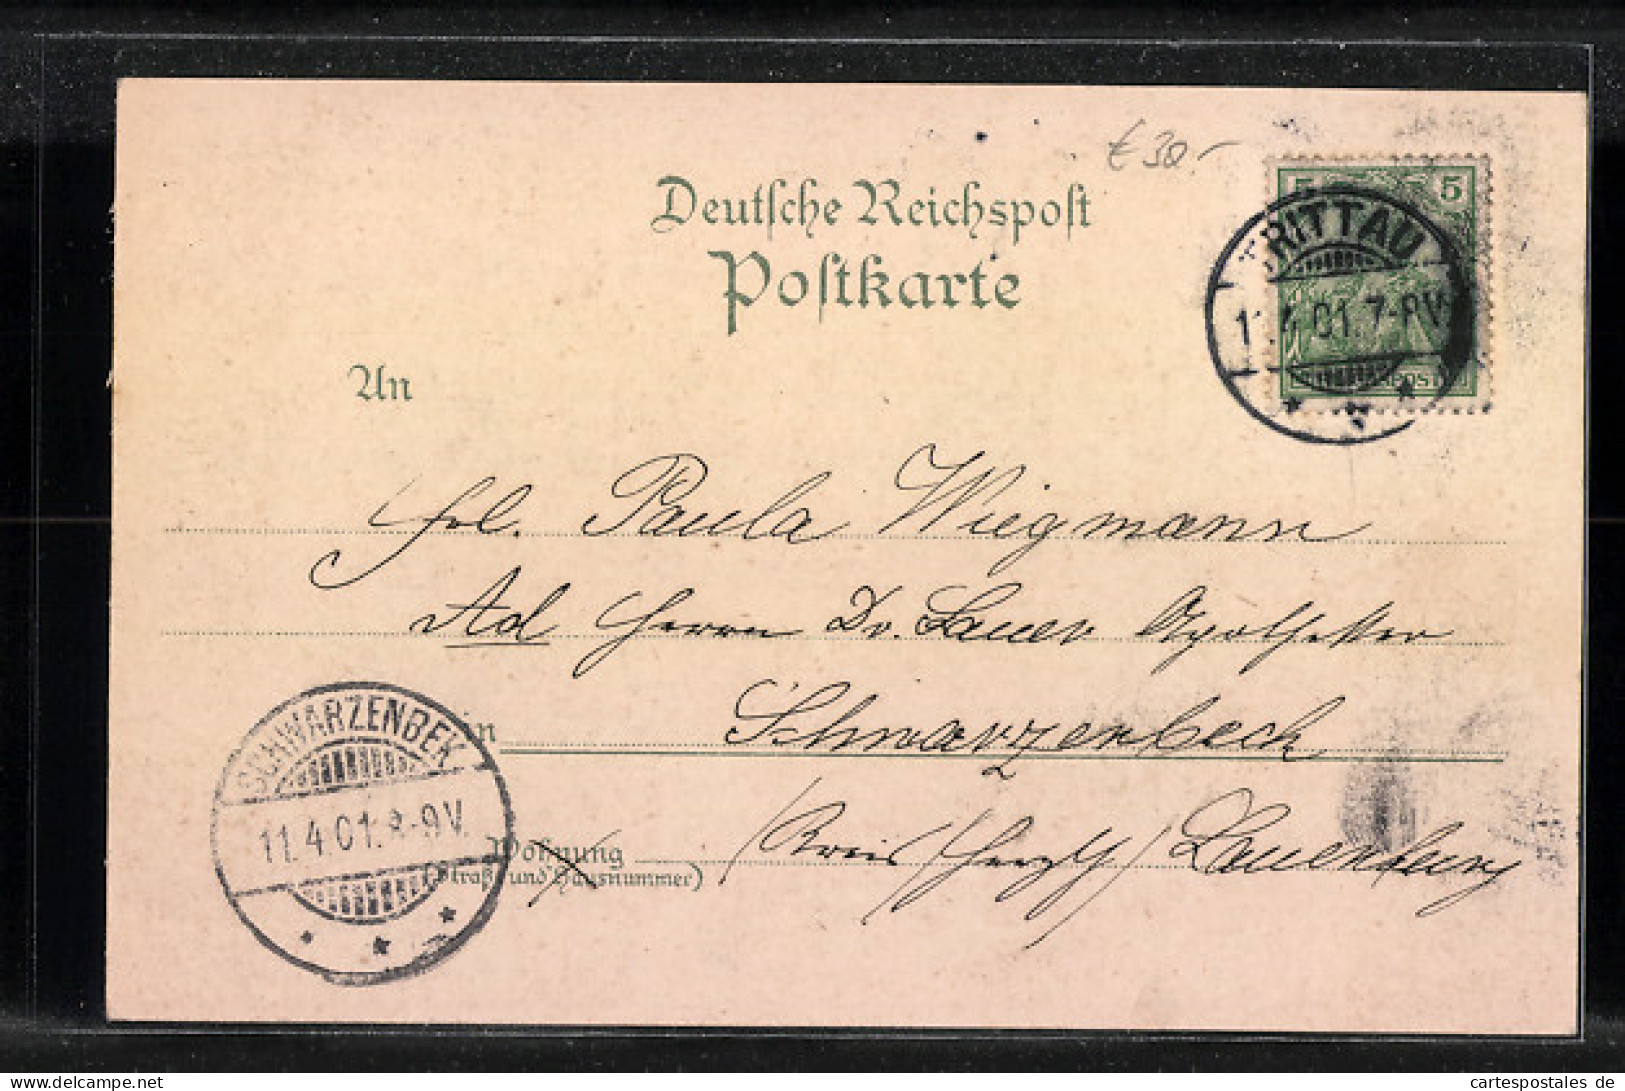 € 30.-
Deutsche Reichspost
Postkarte
5 5
TRITTAU
11.4.01.7-8V
An
Frl. Paula Wiegmann
Ad Herrn Dr. Lauer Apotheker
in Schwarzenbeck
SCHWARZENBEK
11.4.01.8-9V.
Wohnung
(Straße und Hausnummer)
Kreis Herzgth Lauenburg
www.cartespostales.de